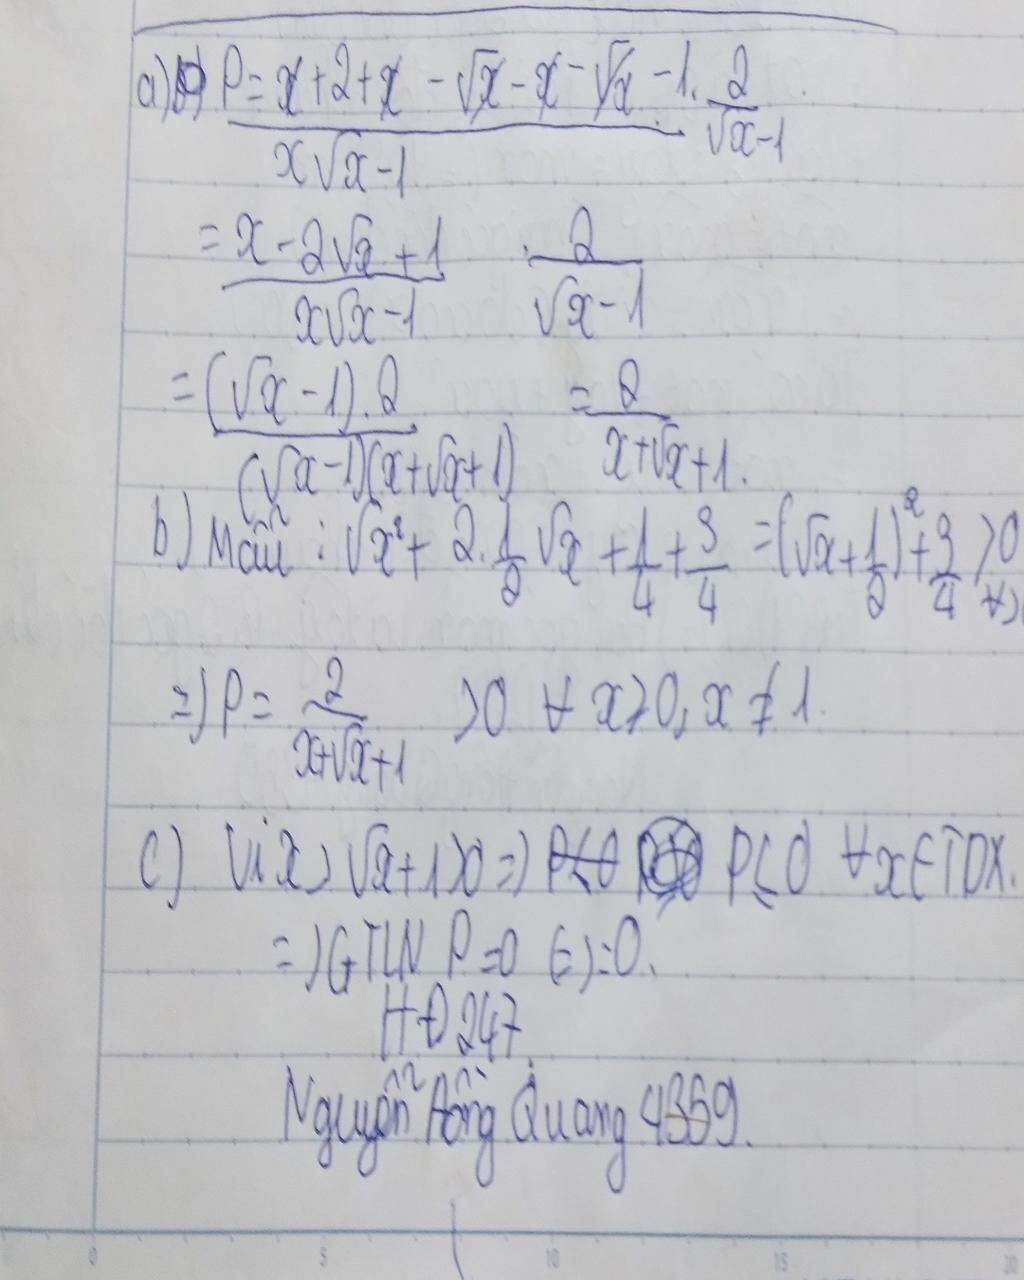 a) P = x + 2 + x - √x - x - √x - 1 . 2
x√x - 1 √x - 1
= x - 2√x + 1 . 2
x√x - 1 √x - 1
= (√x - 1).2 = 2
(√x - 1)(x + √x + 1) x + √x + 1.
b) Mẫu : √x² + 2. 1/2 √x + 1/4 + 3/4 = (√x + 1/2)² + 3/4 > 0 ∀
=> P = 2 > 0 ∀ x > 0, x ≠ 1.
x + √x + 1
c) Vì x > √x + 1 > 0 => P ≤ 0 ∀x ∈ TDX.
=> GTLN P = 0 <=> = 0.
HĐ 247
Nguyễn Hồng Quang 4359.
0 5 10 15 20